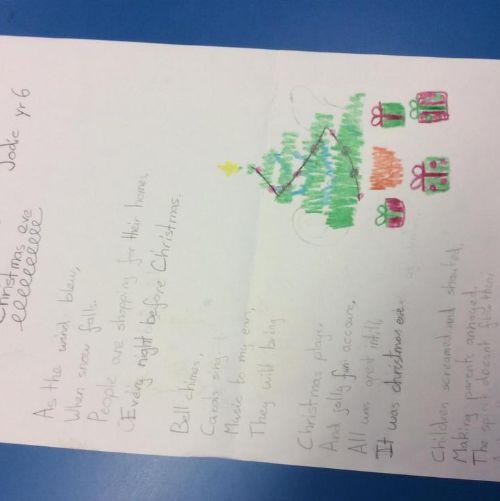 Christmas eve
Jodie yr 6
As the wind blew,
When snow falls.
People are shopping for their homes
Every night before Christmas.
Bell chimes,
Carols sing
Music to my ear,
They will bring
Christmas plays,
And jolly fun
All was
It was christmas eve.
Children screamed and shouted,
Making parents annoyed.
The spirit doesn't